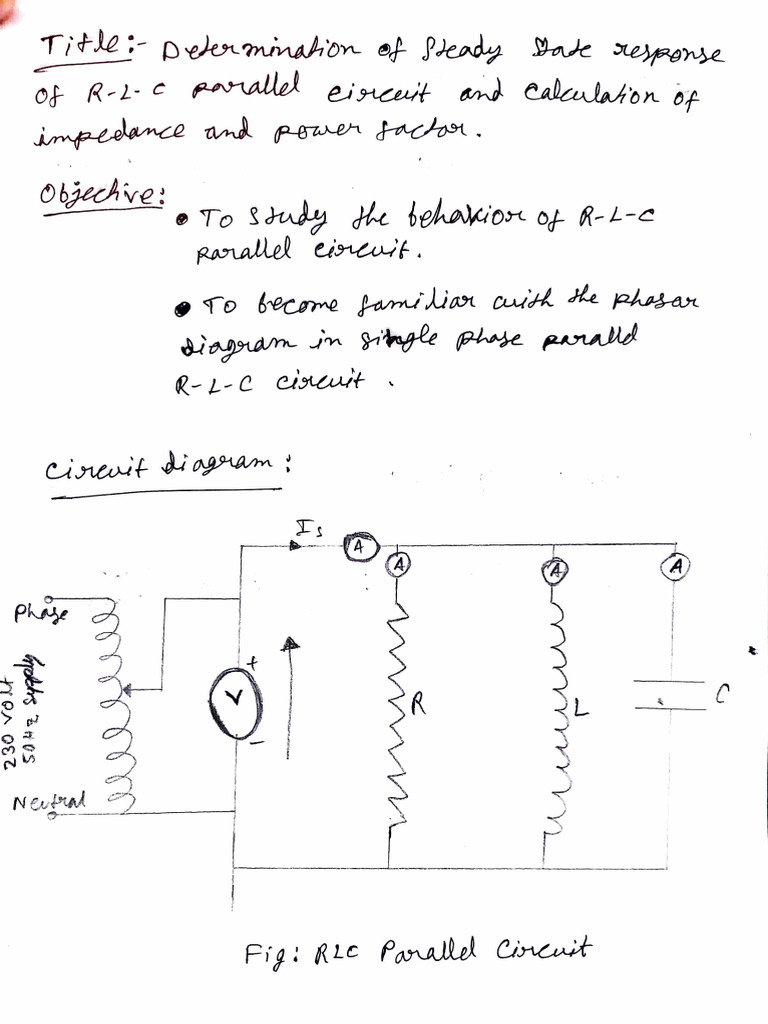 Title:- Determination of Steady State response
of R-L-C parallel circuit and calculation of
impedance and power factor.
Objective:
• To study the behavior of R-L-C
parallel circuit.
• To become familiar with the phasor
diagram in single phase parallel
R-L-C circuit.
Circuit diagram:
Is
A
A
A
A
Phase
+
V
-
R
L
C
230 volt
50Hz supply
Neutral
Fig: RLC Parallel Circuit